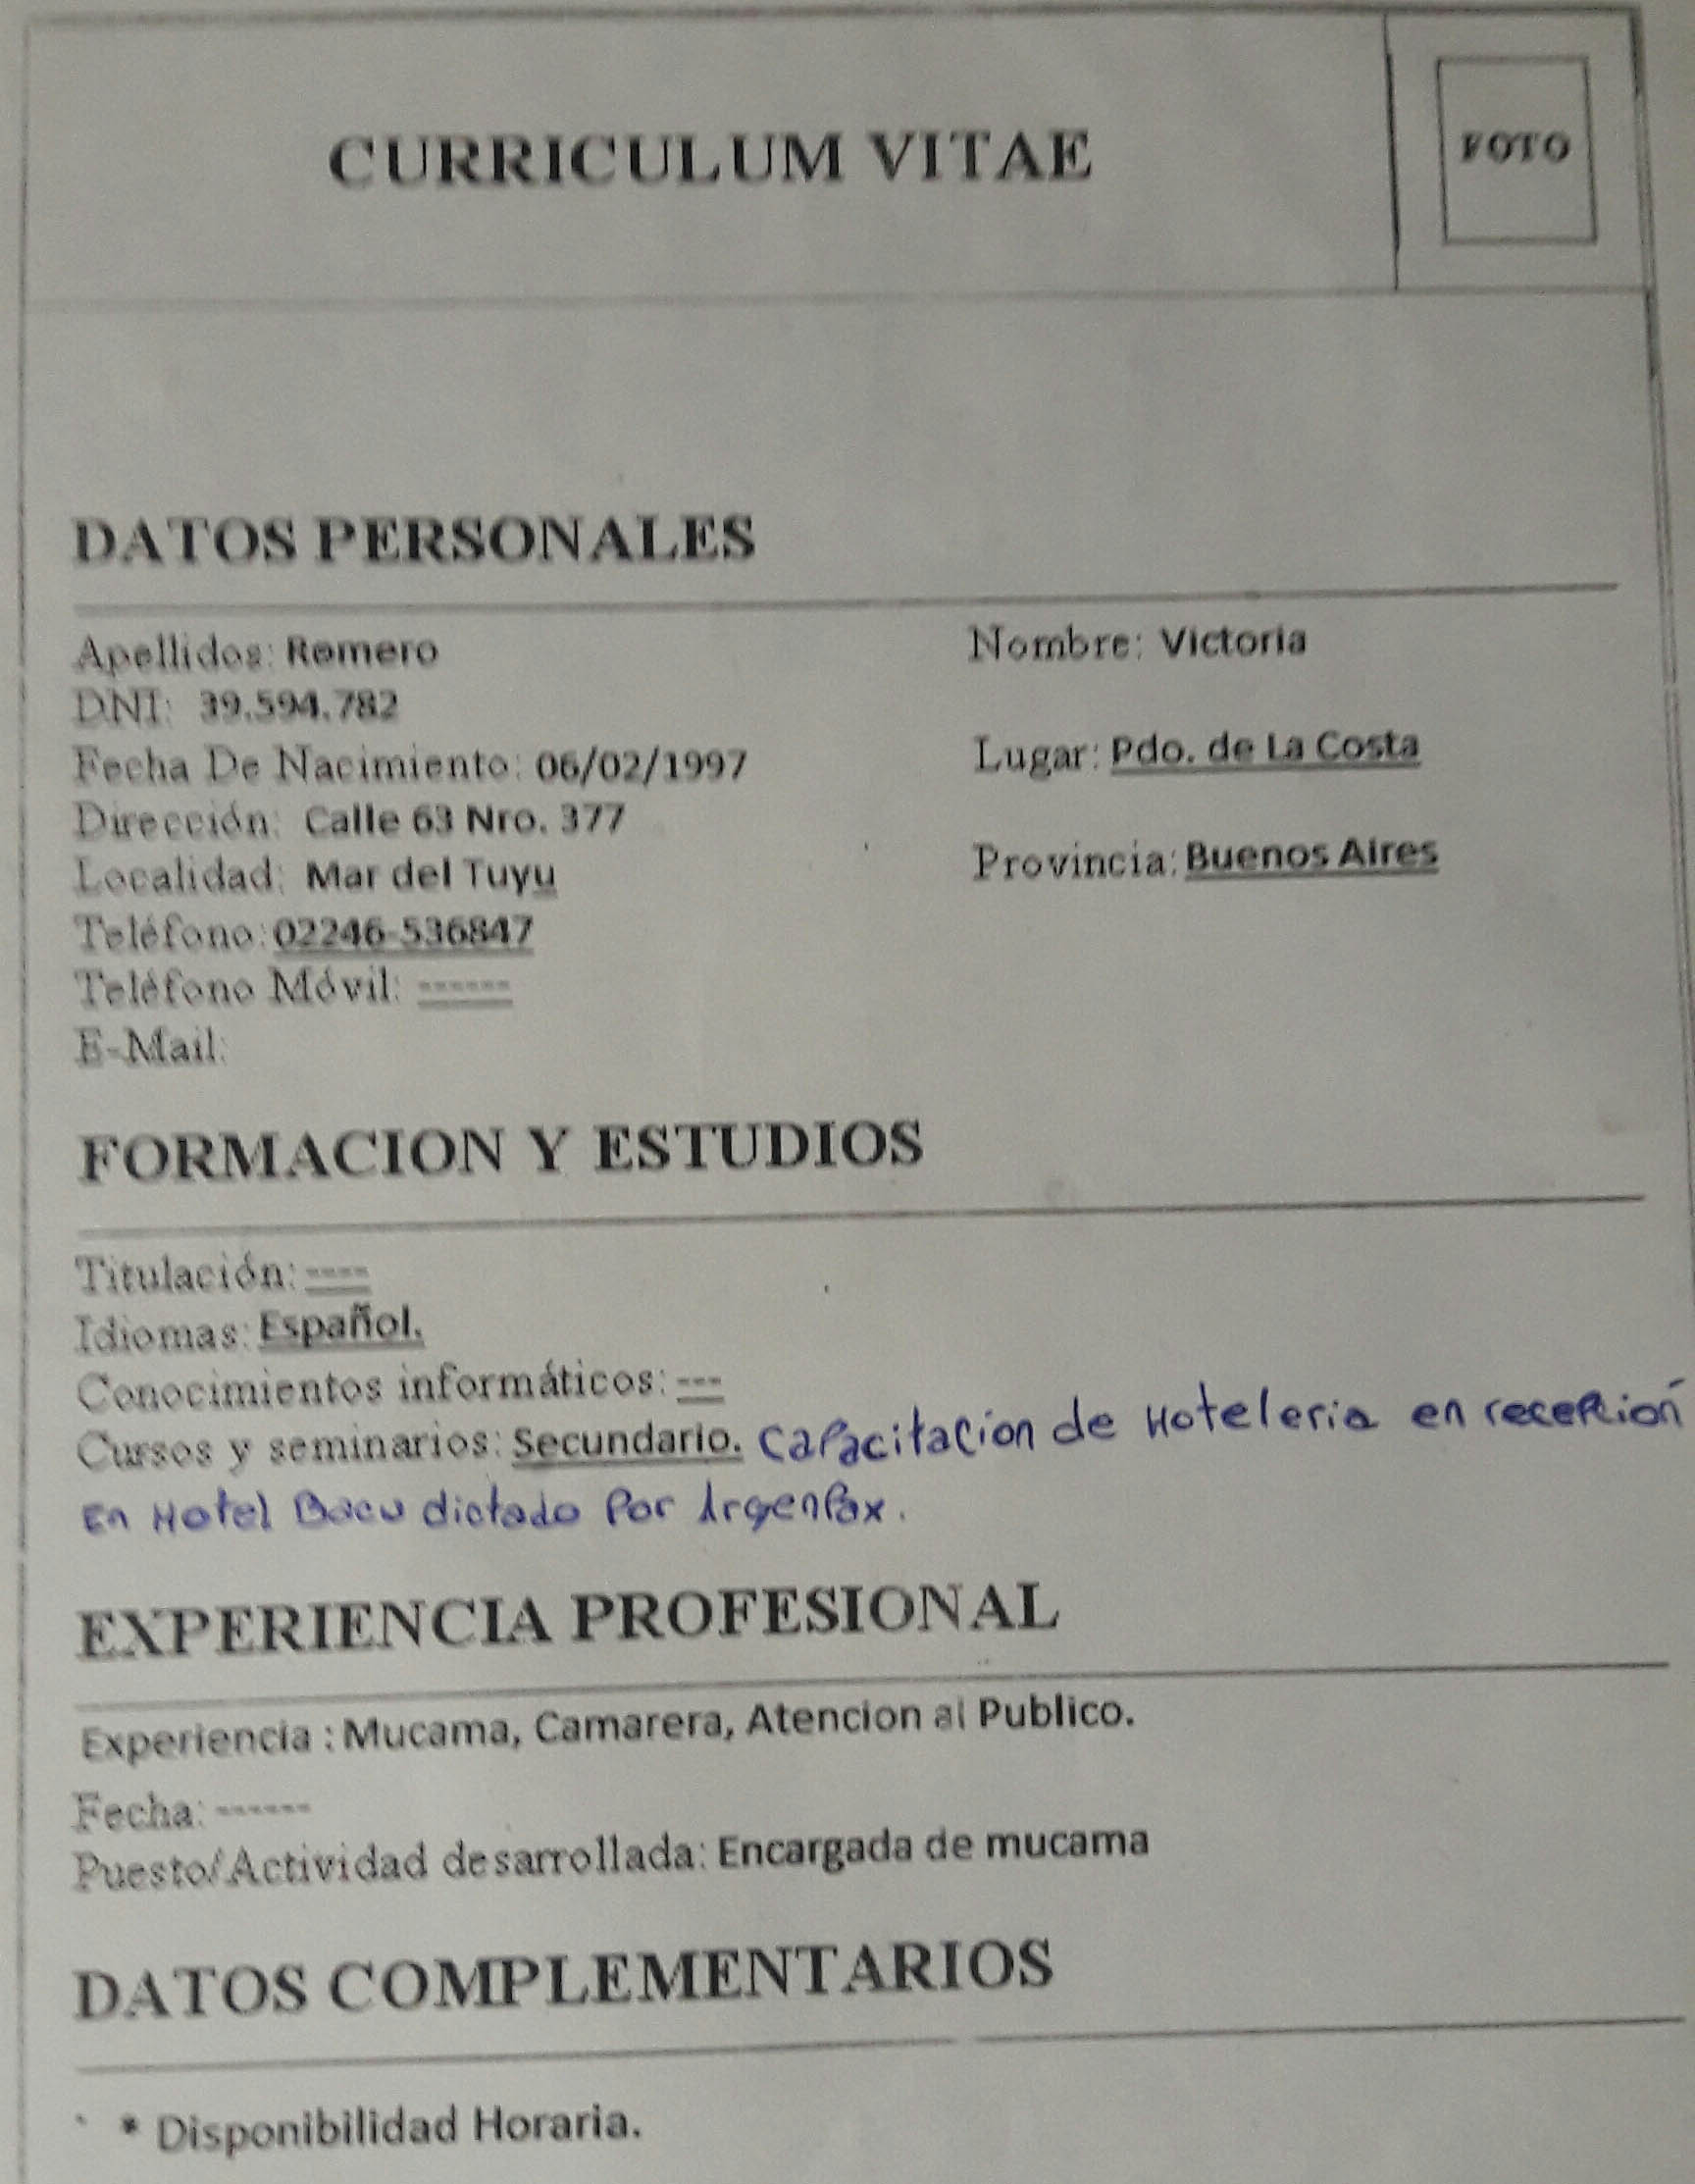 CURRICULUM VITAE
FOTO
DATOS PERSONALES
Apellidos: Romero
Nombre: Victoria
DNI: 39.594.782
Fecha De Nacimiento: 06/02/1997
Lugar: Pdo. de La Costa
Dirección: Calle 63 Nro. 377
Localidad: Mar del Tuyu
Provincia: Buenos Aires
Teléfono: 02246-536847
Teléfono Móvil: ------
E-Mail:
FORMACION Y ESTUDIOS
Titulación: ----
Idiomas: Español.
Conocimientos informáticos: ---
Cursos y seminarios: Secundario. Capacitacion de Hoteleria en recepción
En Hotel dictado Por Argenpax.
EXPERIENCIA PROFESIONAL
Experiencia : Mucama, Camarera, Atencion al Publico.
Fecha: ------
Puesto/Actividad desarrollada: Encargada de mucama
DATOS COMPLEMENTARIOS
* Disponibilidad Horaria.